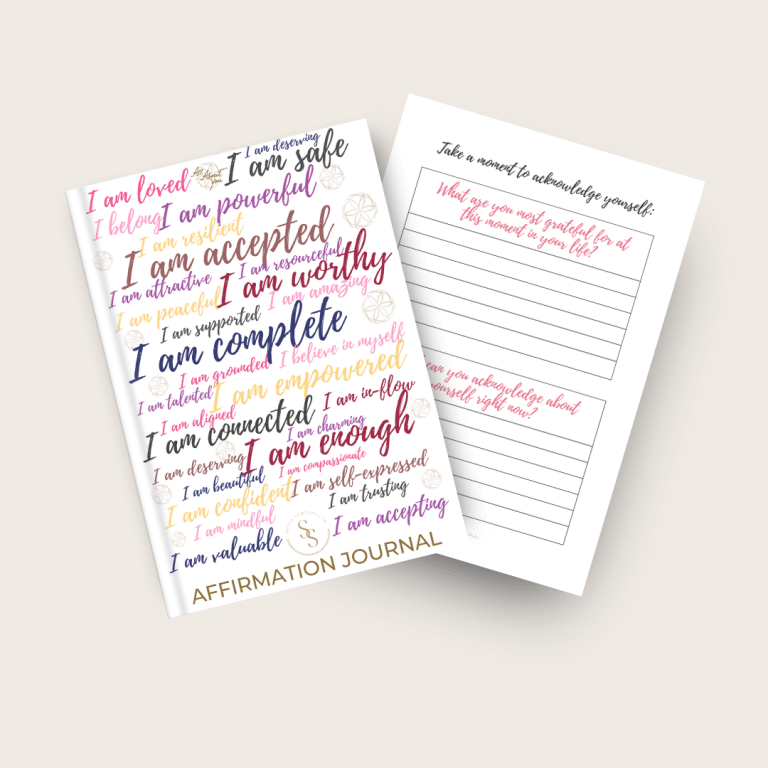 I am deserving
I am safe
All About
You
I am loved
I am powerful
I belong
I am resilient
I am accepted
I am resourceful
I am attractive
I am worthy
I am peaceful
I am amazing
I am supported
I am complete
I believe in myself
I am grounded
I am empowered
I am talented
I am in-flow
I am aligned
I am charming
I am connected
I am enough
I am deserving
I am compassionate
I am beautiful
I am self-expressed
I am confident
I am trusting
I am mindful
I am accepting
SS
I am valuable
AFFIRMATION JOURNAL
Take a moment to acknowledge yourself:
What are you most grateful for at
this moment in your life?
can you acknowledge about
yourself right now?